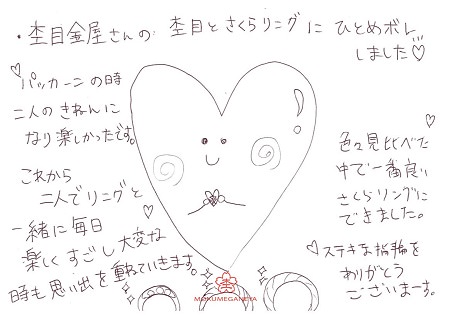 ・杢目金屋さんの 杢目とさくらリングに ひとめボレ
しました♡
♡パッカーンの時
二人のきねんに
なり楽しかったです。
これから
二人でリングと
一緒に毎日
楽しくすごし大変な
時も思い出を重ねていきます。
色々見比べた
中で一番良い
さくらリングに
できました。
♡ステキな指輪を
ありがとう
ございまーす。
MOKUMEGANEYA